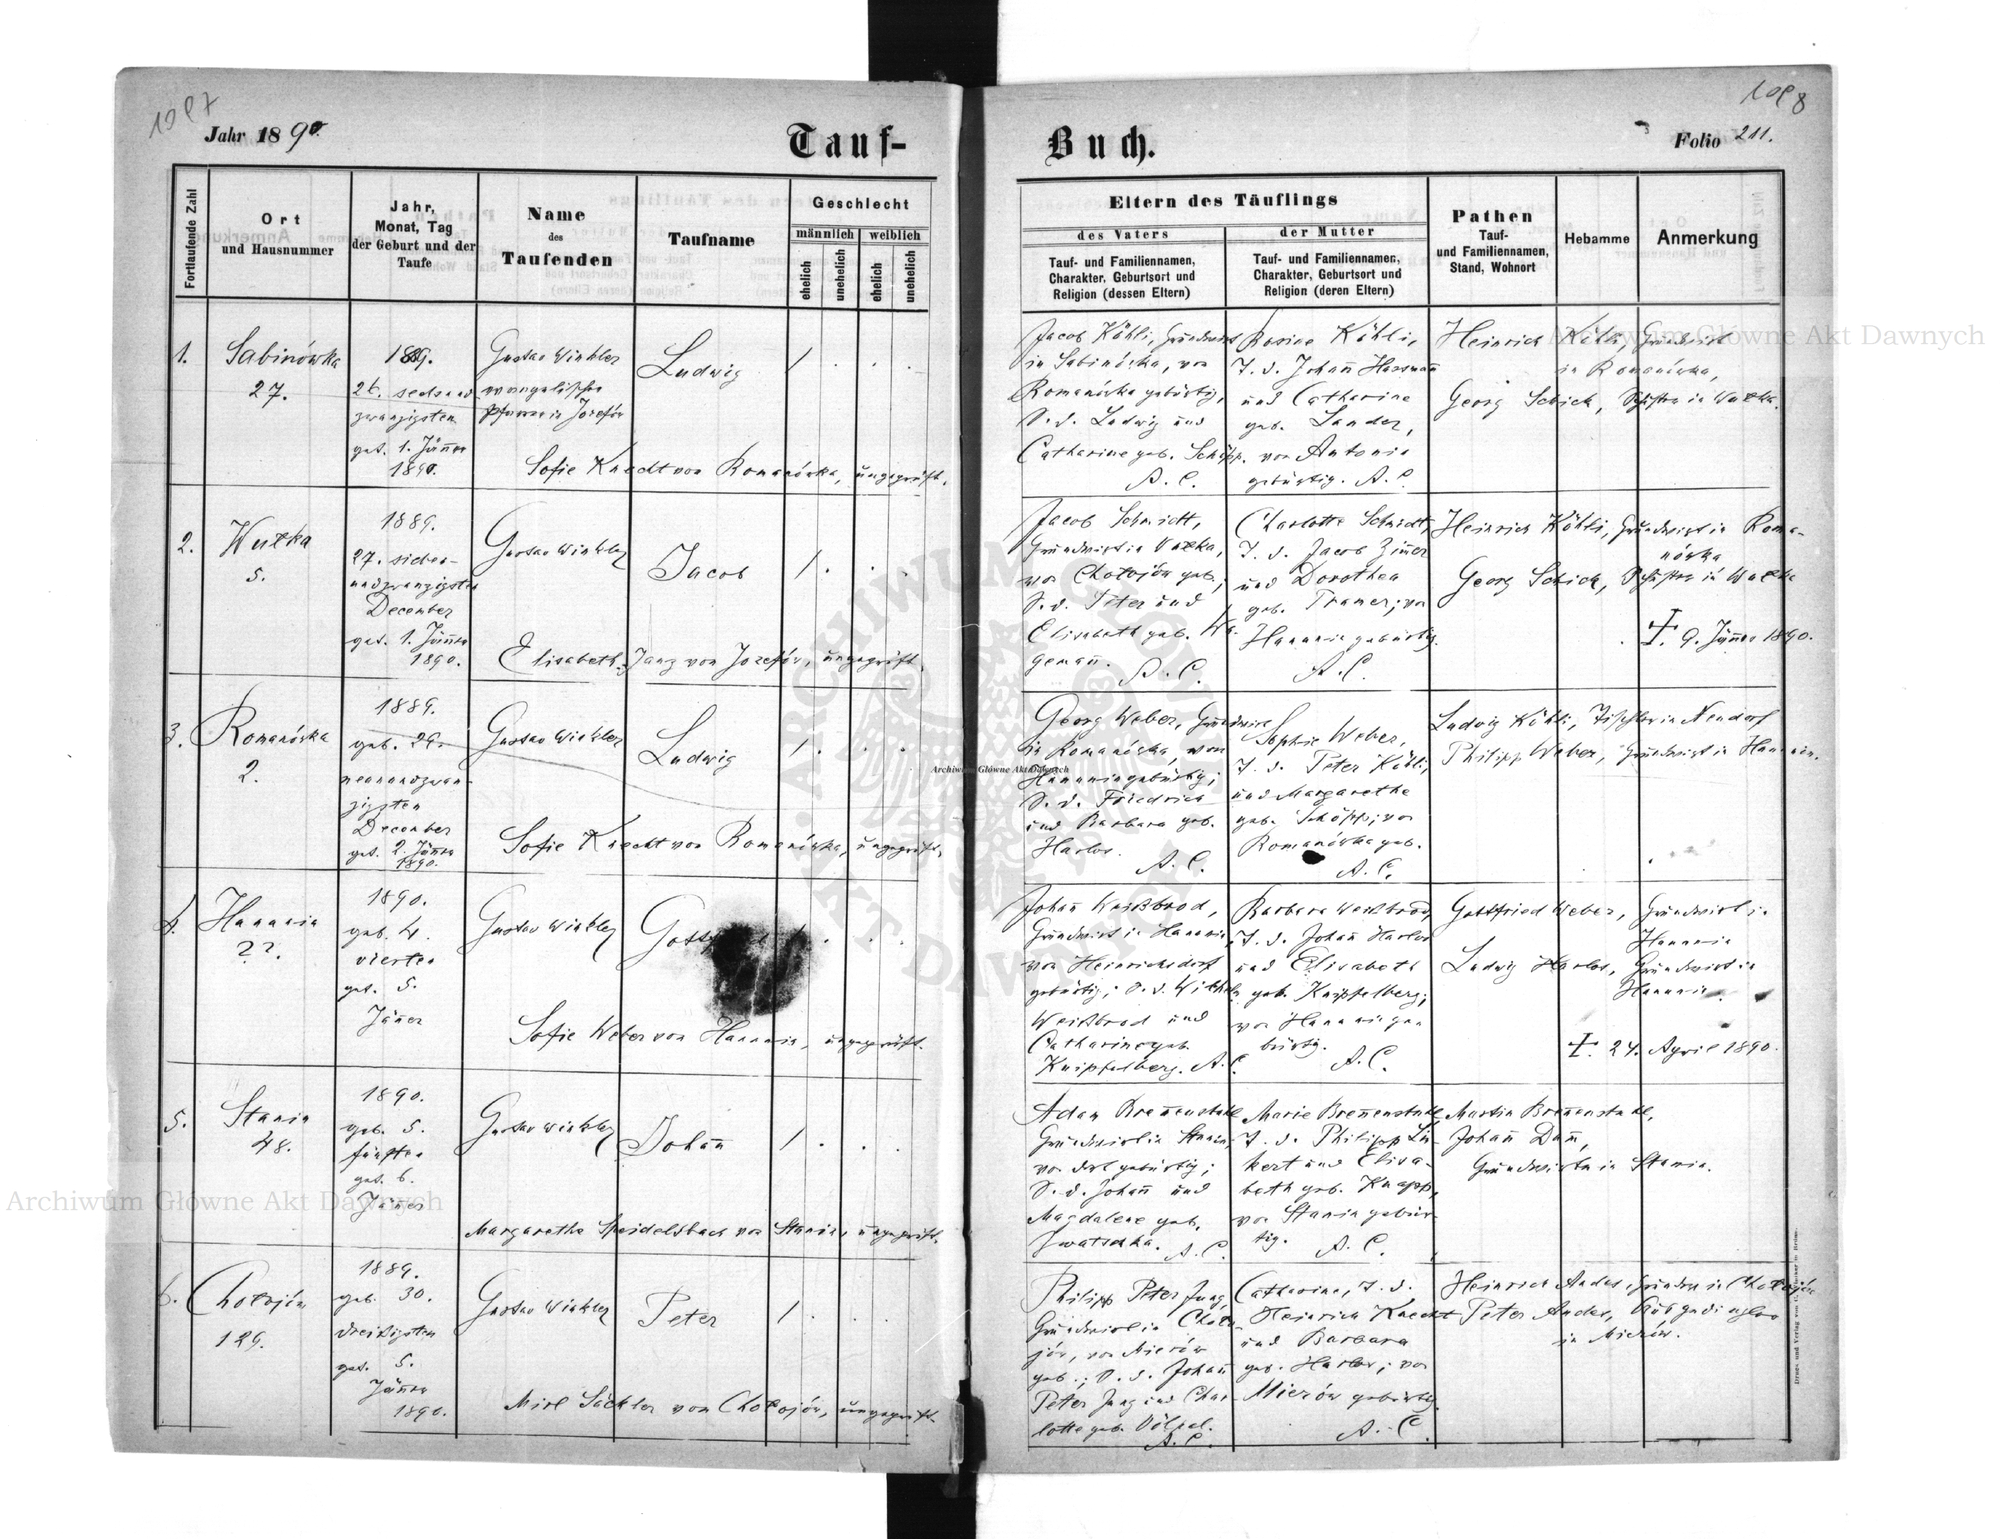 1097
1098
Jahr 1890
Tauf-
Buch.
Folio 211.
Fortlaufende Zahl
Ort
und Hausnummer
Jahr,
Monat, Tag
der Geburt und der
Taufe
Name
des
Taufenden
Taufname
Geschlecht
männlich
weiblich
ehelich
unehelich
ehelich
unehelich
Eltern des Täuflings
des Vaters
Tauf- und Familiennamen,
Charakter, Geburtsort und
Religion (dessen Eltern)
der Mutter
Tauf- und Familiennamen,
Charakter, Geburtsort und
Religion (deren Eltern)
Pathen
Tauf-
und Familiennamen,
Stand, Wohnort
Hebamme
Anmerkung
1.
Sabinówka
27.
1889.
26. sechsund
zwanzigsten
get. 1. Jänner
1890.
Gustav Winkler
evangelischer
Pfarrer in Josefów
Ludwig
1 . . .
Sofie Knecht von Romanówka, ungeprüft.
Jacob Köhli, Grundwirt
in Sabinówka, von
Romanówka gebürtig,
S. d. Ludwig und
Catharine geb. Schöpp.
A. C.
Rosine Köhli,
T. d. Johañ Hassmañ
und Catharine
geb. Sander,
von Antonia
gebürtig. A. C.
Heinrich Köhli, Grundwirt
in Romanówka,
Georg Schick, Schuster in Wutka.
2.
Wutka
5.
1889.
27. sieben-
undzwanzigsten
December
get. 1. Jänner
1890.
Gustav Winkler
Jacob
1 . . .
Elisabeth Janz von Jozefów, ungeprüft.
Jacob Schmidt,
Grundwirt in Wutka,
von Chotojów geb.;
S. d. Peter und
Elisabeth geb. Wi-
gemañ. A. C.
Charlotte Schmidt,
T. d. Jacob Zimer
und Dorothea
geb. Tramer; von
Hanunin gebürtig.
A. C.
Heinrich Köhli, Grundwirt in Roma-
nówka
Georg Schick, Schuster in Wutka
†. 9. Jänner 1890.
3.
Romanówka
2.
1889.
geb. 29.
neunundzwan-
zigsten
December
get. 2. Jänner
1890.
Gustav Winkler
Ludwig
1 . . .
Sofie Knecht von Romanówka, ungeprüft.
Georg Weber, Grundwirt
in Romanówka, von
Hanunin gebürtig;
S. d. Friedrich
und Barbara geb.
Harlos.
A. C.
Sophie Weber,
T. d. Peter Köhli,
und Margarethe
geb. Schöpp; von
Romanówka geb.
A. C.
Ludwig Köhli, Tischler in Neudorf,
Philipp Weber, Grundwirt in Hanunin.
4.
Hanunin
22.
1890.
geb. 4.
vierten
get. 5.
Jäner
Gustav Winkler
1 . . .
Sofie Weber von Hanunin, ungeprüft.
Johañ Weißbrod,
Grundwirt in Hanunin,
von Heinrichsdorf
gebürtig; S. d. Wilhelm
Weißbrod und
Catharine geb.
Knipfelberg. A. C.
Barbara Weißbrod,
T. d. Johañ Harlos
und Elisabeth
geb. Knipfelberg;
von Hanunin ge-
bürtig.
A. C.
Gottfried Weber, Grundwirt in
Hanunin
Ludwig Harlos, Grundwirt in
Hanunin.
†. 24. April 1890.
5.
Stanin
48.
1890.
geb. 5.
fünften
get. 6.
Jäner
Gustav Winkler
Johañ
1 . . .
Margarethe Speidelsbach von Stanin, ungeprüft.
Adam Breñenstuhl
Grundwirt in Stanin,
von dort gebürtig;
S. d. Johañ und
Magdalene geb.
Hwatschka. A. C.
Marie Breñenstuhl
T. d. Philipp Lin-
kert und Elisa-
beth geb. Knapp,
von Stanin gebür-
tig. A. C.
Martin Breñenstuhl,
Johañ Dam,
Grundwirte in Stanin.
6.
Chotojów
129.
1889.
geb. 30.
dreißigsten
get. 5.
Jänner
1890.
Gustav Winkler
Peter
1 . . .
Mirl Säckler von Chotojów, ungeprüft.
Philipp Peter Jung,
Grundwirt in Choto-
jów, von Mierów
geb.; S. d. Johañ
Peter Jung und Char-
lotte geb. Völpel.
A. C.
Catharine, T. d.
Heinrich Knecht
und Barbara
geb. Harlos; von
Mierów gebürtig.
A. C.
Heinrich Andes, Grundw. in Chotojów
Peter Andes, Ausgedingler
in Mierów.
Archiwum Główne Akt Dawnych
Archiwum Główne Akt Dawnych
Archiwum Główne Akt Dawnych
ARCHIWUM GŁÓWNE AKT DAWNYCH